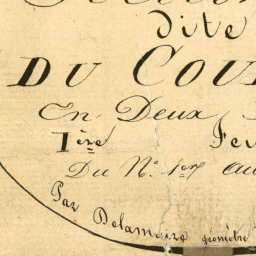 dite
DU COU
En Deux
1ère Feu
Du N° 1er au
Par Delamarre géomètre